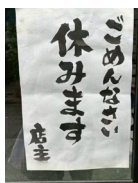 ごめんなさい
休みます
店主